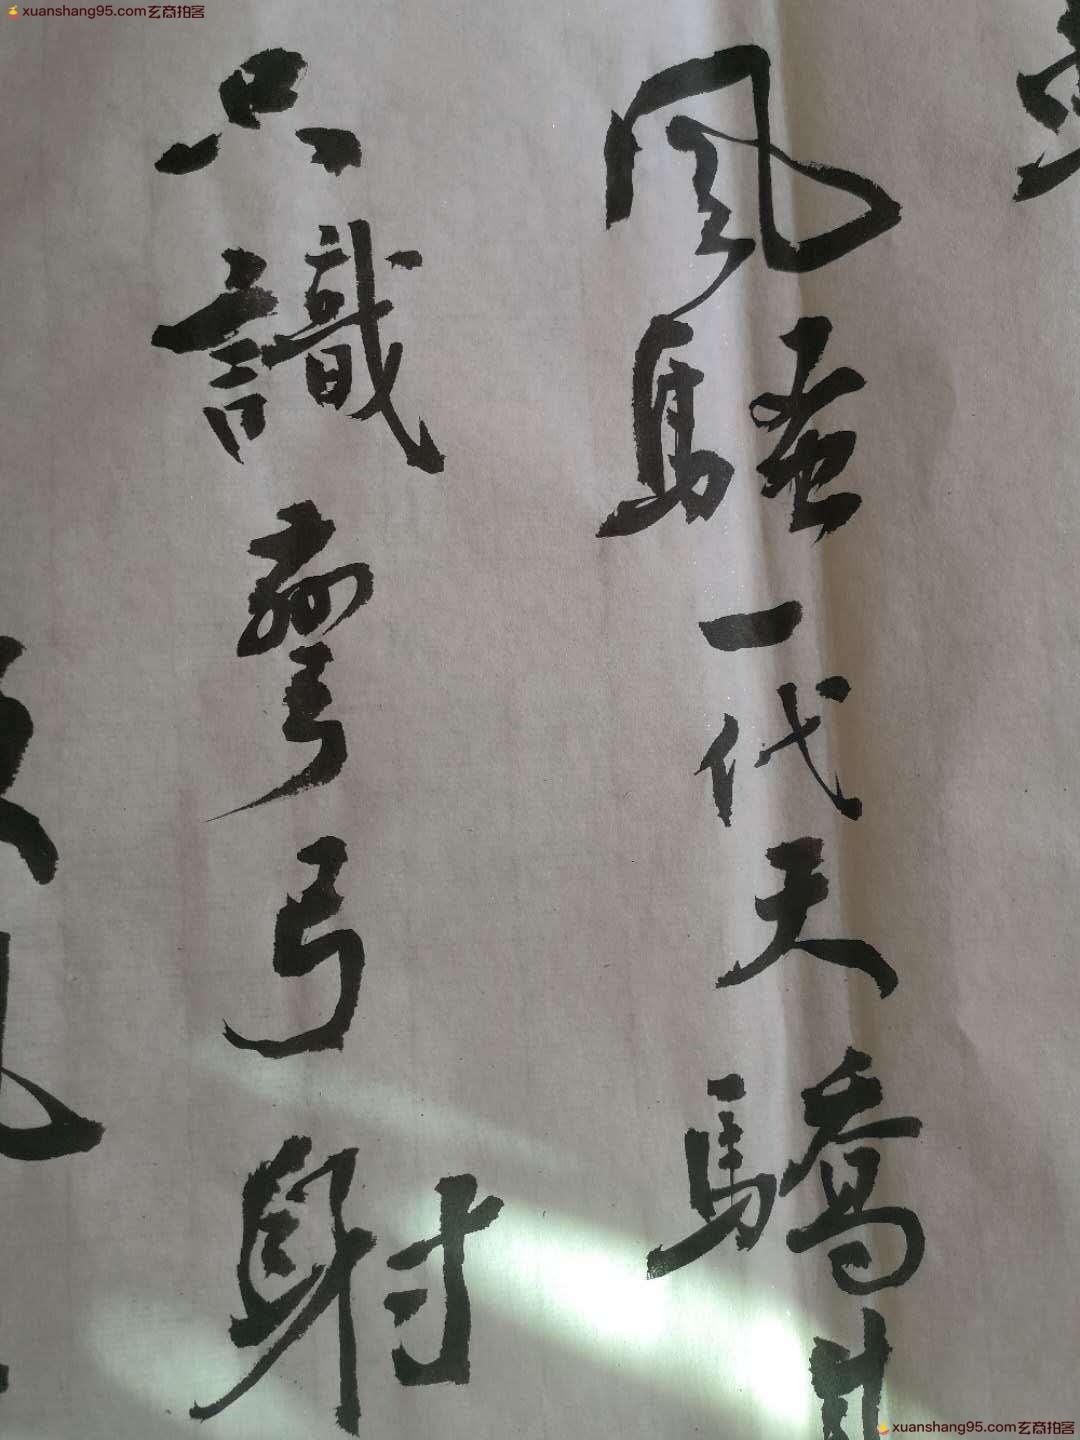 xuanshang95.com玄商拍客
風騷一代天驕
只識彎弓射
xuanshang95.com玄商拍客